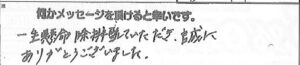 何かメッセージを頂けると幸いです。
一生懸命 除排雪していただき、本当に
ありがとうございました。